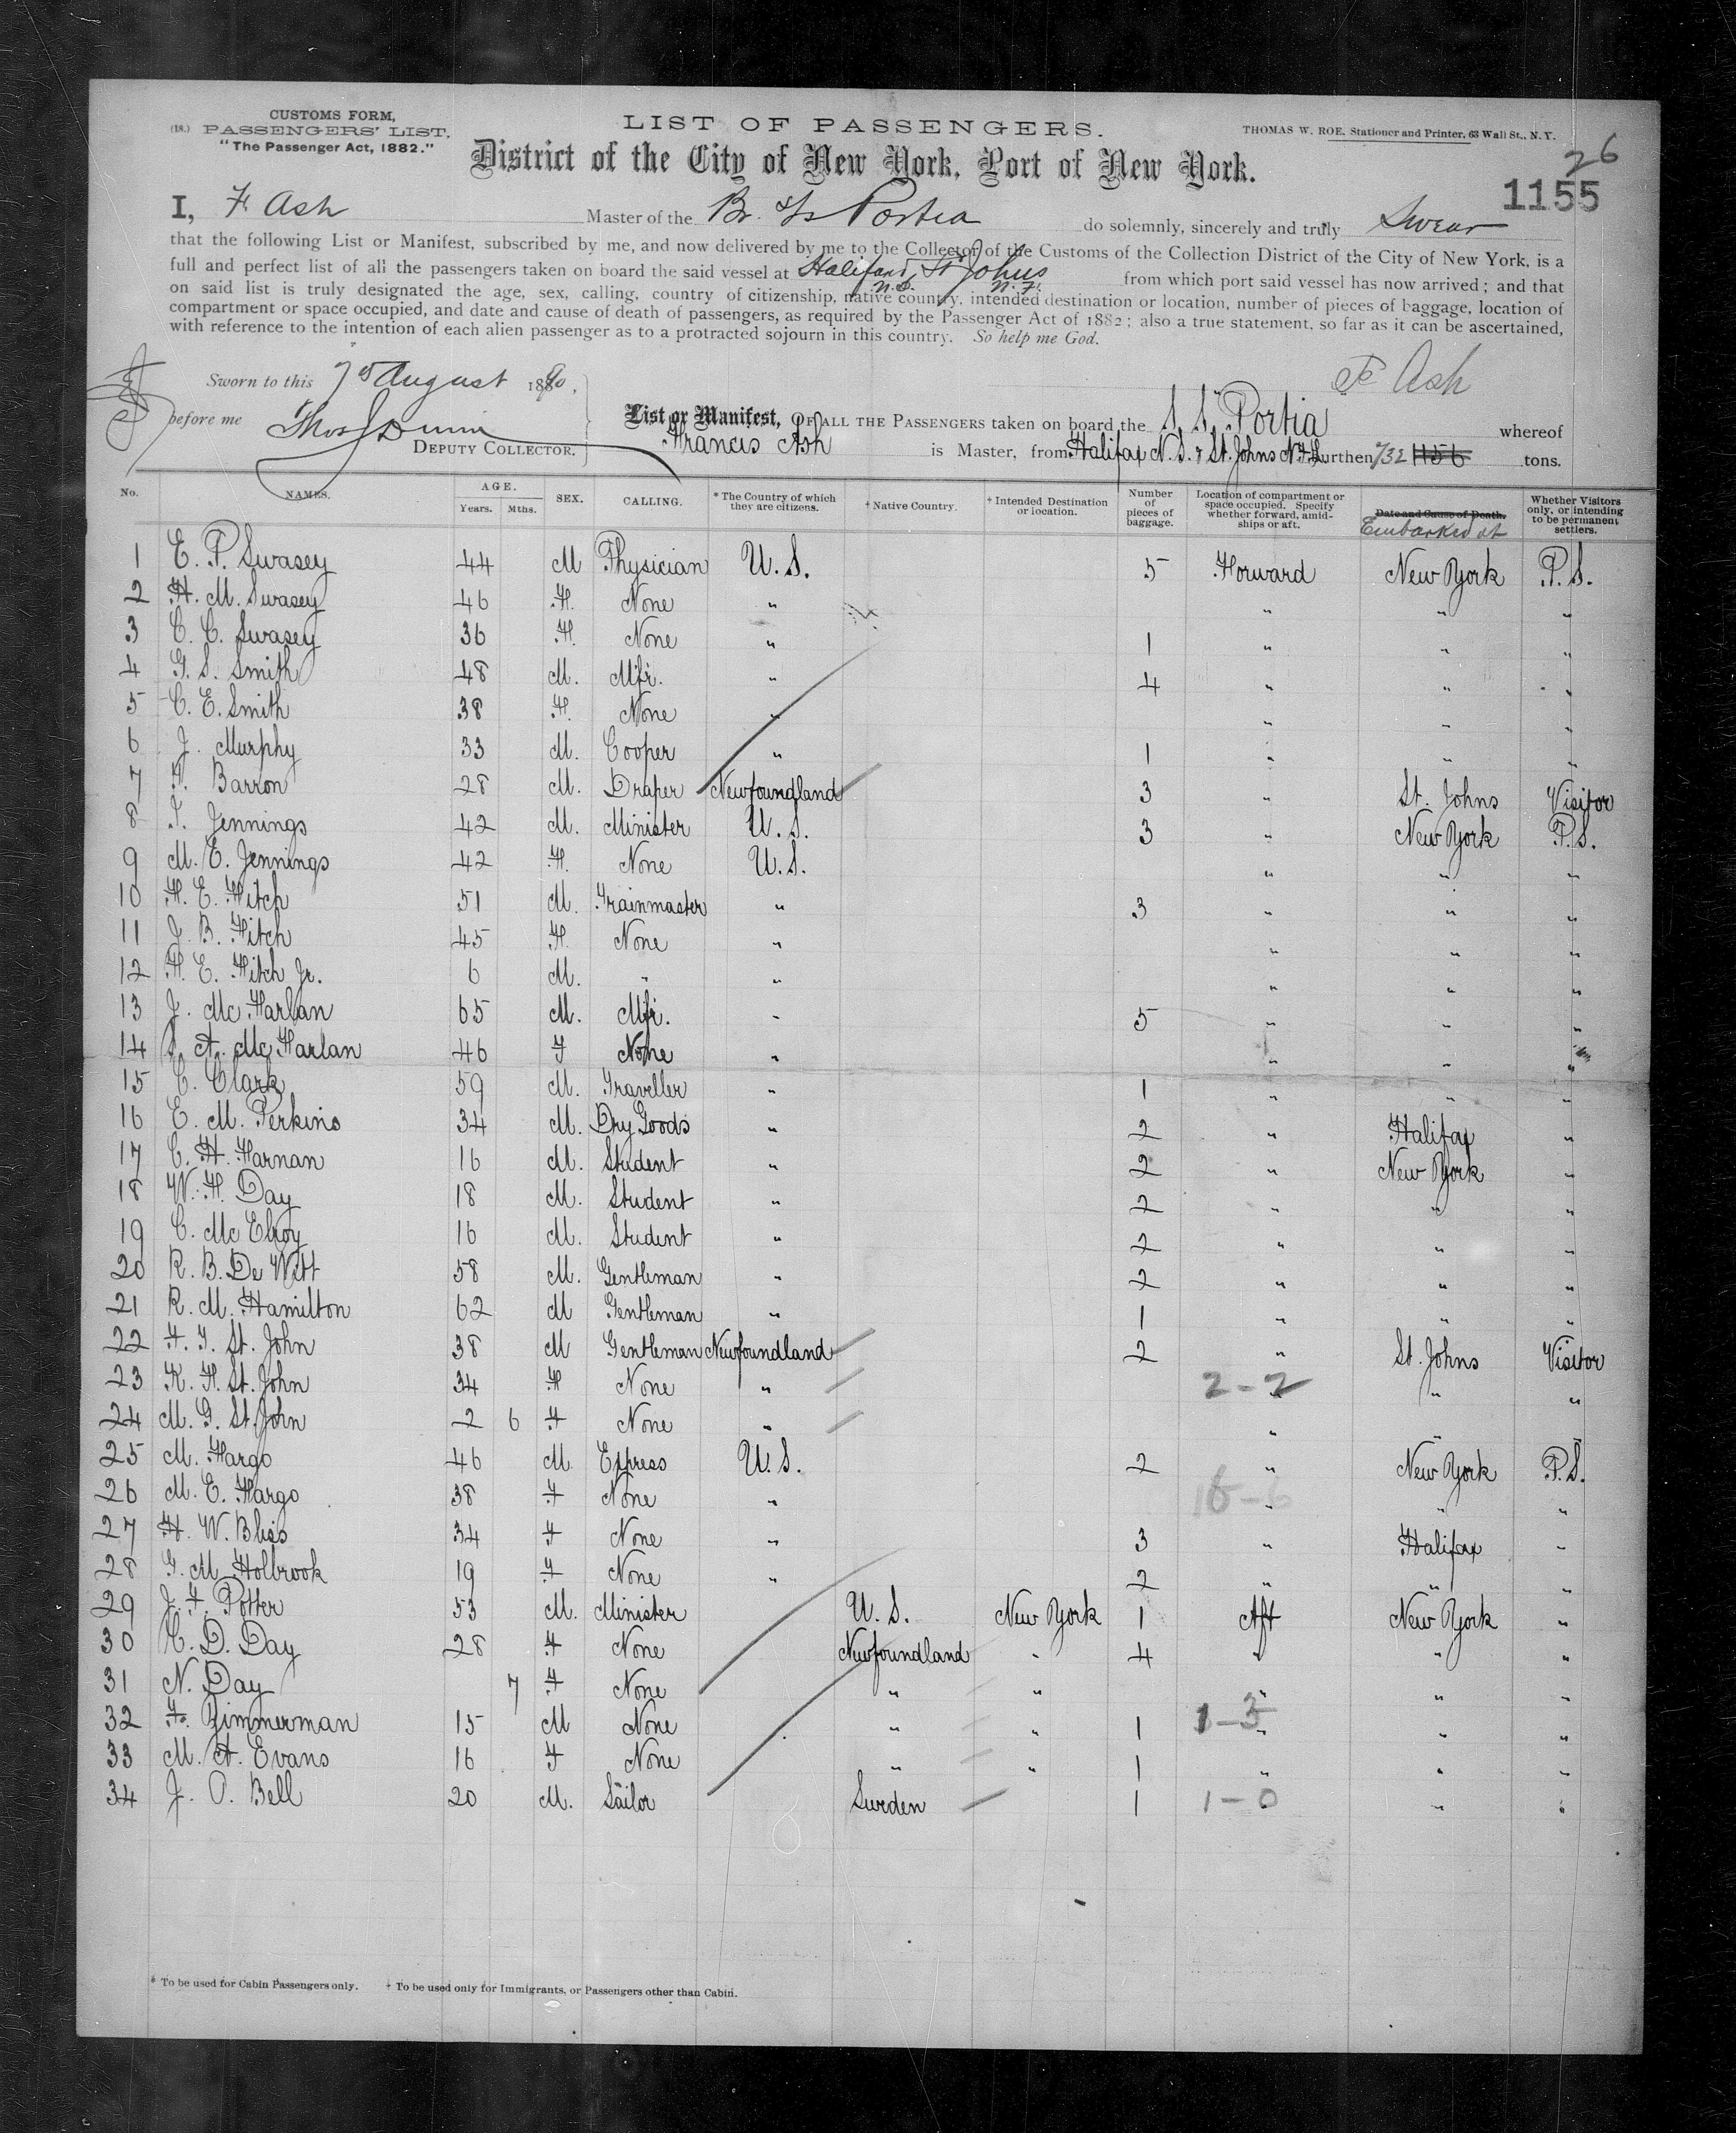 CUSTOMS FORM,
(18.) PASSENGERS' LIST,
"The Passenger Act, 1882."
LIST OF PASSENGERS.
THOMAS W. ROE, Stationer and Printer, 63 Wall St., N. Y.
26
District of the City of New York, Port of New York.
1155
I, F. Ash Master of the Br. S/s Portia do solemnly, sincerely and truly Swear
that the following List or Manifest, subscribed by me, and now delivered by me to the Collector of the Customs of the Collection District of the City of New York, is a
full and perfect list of all the passengers taken on board the said vessel at Halifax N.S. St Johns N.F. from which port said vessel has now arrived; and that
on said list is truly designated the age, sex, calling, country of citizenship, native country, intended destination or location, number of pieces of baggage, location of
compartment or space occupied, and date and cause of death of passengers, as required by the Passenger Act of 1882; also a true statement, so far as it can be ascertained,
with reference to the intention of each alien passenger as to a protracted sojourn in this country. So help me God.
Sworn to this 7th August 1890,
F Ash
before me Thos J Dunn
DEPUTY COLLECTOR.
List or Manifest, OF ALL THE PASSENGERS taken on board the S.S. Portia whereof
Francis Ash is Master, from Halifax N.S. & St. Johns N.F.L. burthen 732 1156 tons.
No. NAMES. AGE. Years. Mths. SEX. CALLING. * The Country of which they are citizens. † Native Country. † Intended Destination or location. Number of pieces of baggage. Location of compartment or space occupied. Specify whether forward, amid-ships or aft. Date and Cause of Death. Embarked at Whether Visitors only, or intending to be permanent settlers.
1 E. P. Swasey 44 M Physician U. S. 5 Forward New York P. S.
2 H. M. Swasey 46 F. None " " " "
3 C. C. Swasey 36 F. None " 1 " " "
4 G. S. Smith 48 M. Mfr. " 4 " " "
5 C. E. Smith 38 F. None " " " "
6 J. Murphy 33 M. Cooper " 1 " " "
7 F. Barron 28 M. Draper Newfoundland 3 " St. Johns Visitor
8 T. Jennings 42 M. Minister U. S. 3 " New York P. S.
9 M. E. Jennings 42 F. None U. S. " " "
10 F. E. Fitch 51 M. Trainmaster " 3 " " "
11 J. B. Fitch 45 F. None " " " "
12 F. E. Fitch Jr. 6 M. " " " " "
13 J. Mc Farlan 65 M. Mfr. " 5 " " "
14 S. A. Mc Farlan 46 F None " " " "
15 C. Clark 59 M. Traveller " 1 " " "
16 E. M. Perkins 34 M. Dry Goods " 2 " Halifax "
17 C. H. Farnan 16 M. Student " 2 " New York "
18 W. F. Day 18 M. Student " 2 " " "
19 C. Mc Elroy 16 M. Student " 2 " " "
20 R. B. De Witt 58 M. Gentleman " 2 " " "
21 R. M. Hamilton 62 M Gentleman " 1 " " "
22 F. T. St. John 38 M Gentleman Newfoundland 2 " St. Johns Visitor
23 K. F. St. John 34 F None " 2-2 " " "
24 M. G. St. John 2 6 F None " " " "
25 M. Fargo 46 M. Express U. S. 2 " New York P. S.
26 M. E. Fargo 38 F None " 16-6 " " "
27 H. W. Bliss 34 F None " 3 " Halifax "
28 G. M. Holbrook 19 F None " 2 " " "
29 J. F. Potter 53 M. Minister U. S. New York 1 Aft New York "
30 C. D. Day 28 F None Newfoundland " 4 " " "
31 N. Day 7 F None " " " " "
32 F. Zimmerman 15 M None " " 1 1-3 " " "
33 M. A. Evans 16 F None " " 1 " " "
34 J. O. Bell 20 M. Sailor Sweden 1 1-0 " "
* To be used for Cabin Passengers only. † To be used only for Immigrants, or Passengers other than Cabin.